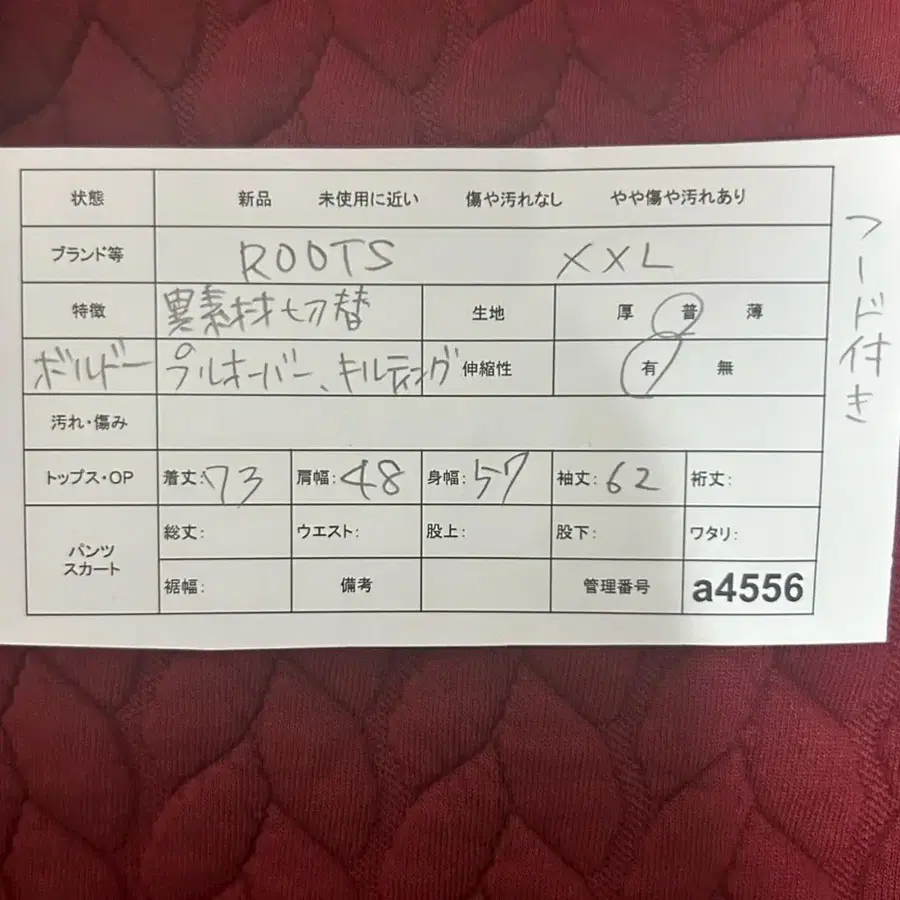 状態 新品 未使用に近い 傷や汚れなし やや傷や汚れあり
ブランド等 ROOTS XXL
特徴 異素材切替 生地 厚 普 薄
ボルドー プルオーバー、キルティング 伸縮性 有 無
汚れ・傷み
トップス・OP 着丈:73 肩幅:48 身幅:57 袖丈:62 裄丈:
パンツ スカート 総丈: ウエスト: 股上: 股下: ワタリ:
裾幅: 備考 管理番号 a4556
フード付き